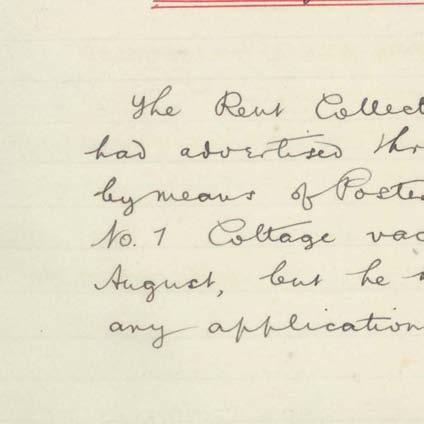 The Rent Collect
had advertised thr
by means of Poste
No. 1 Cottage vac
August, but he
any application